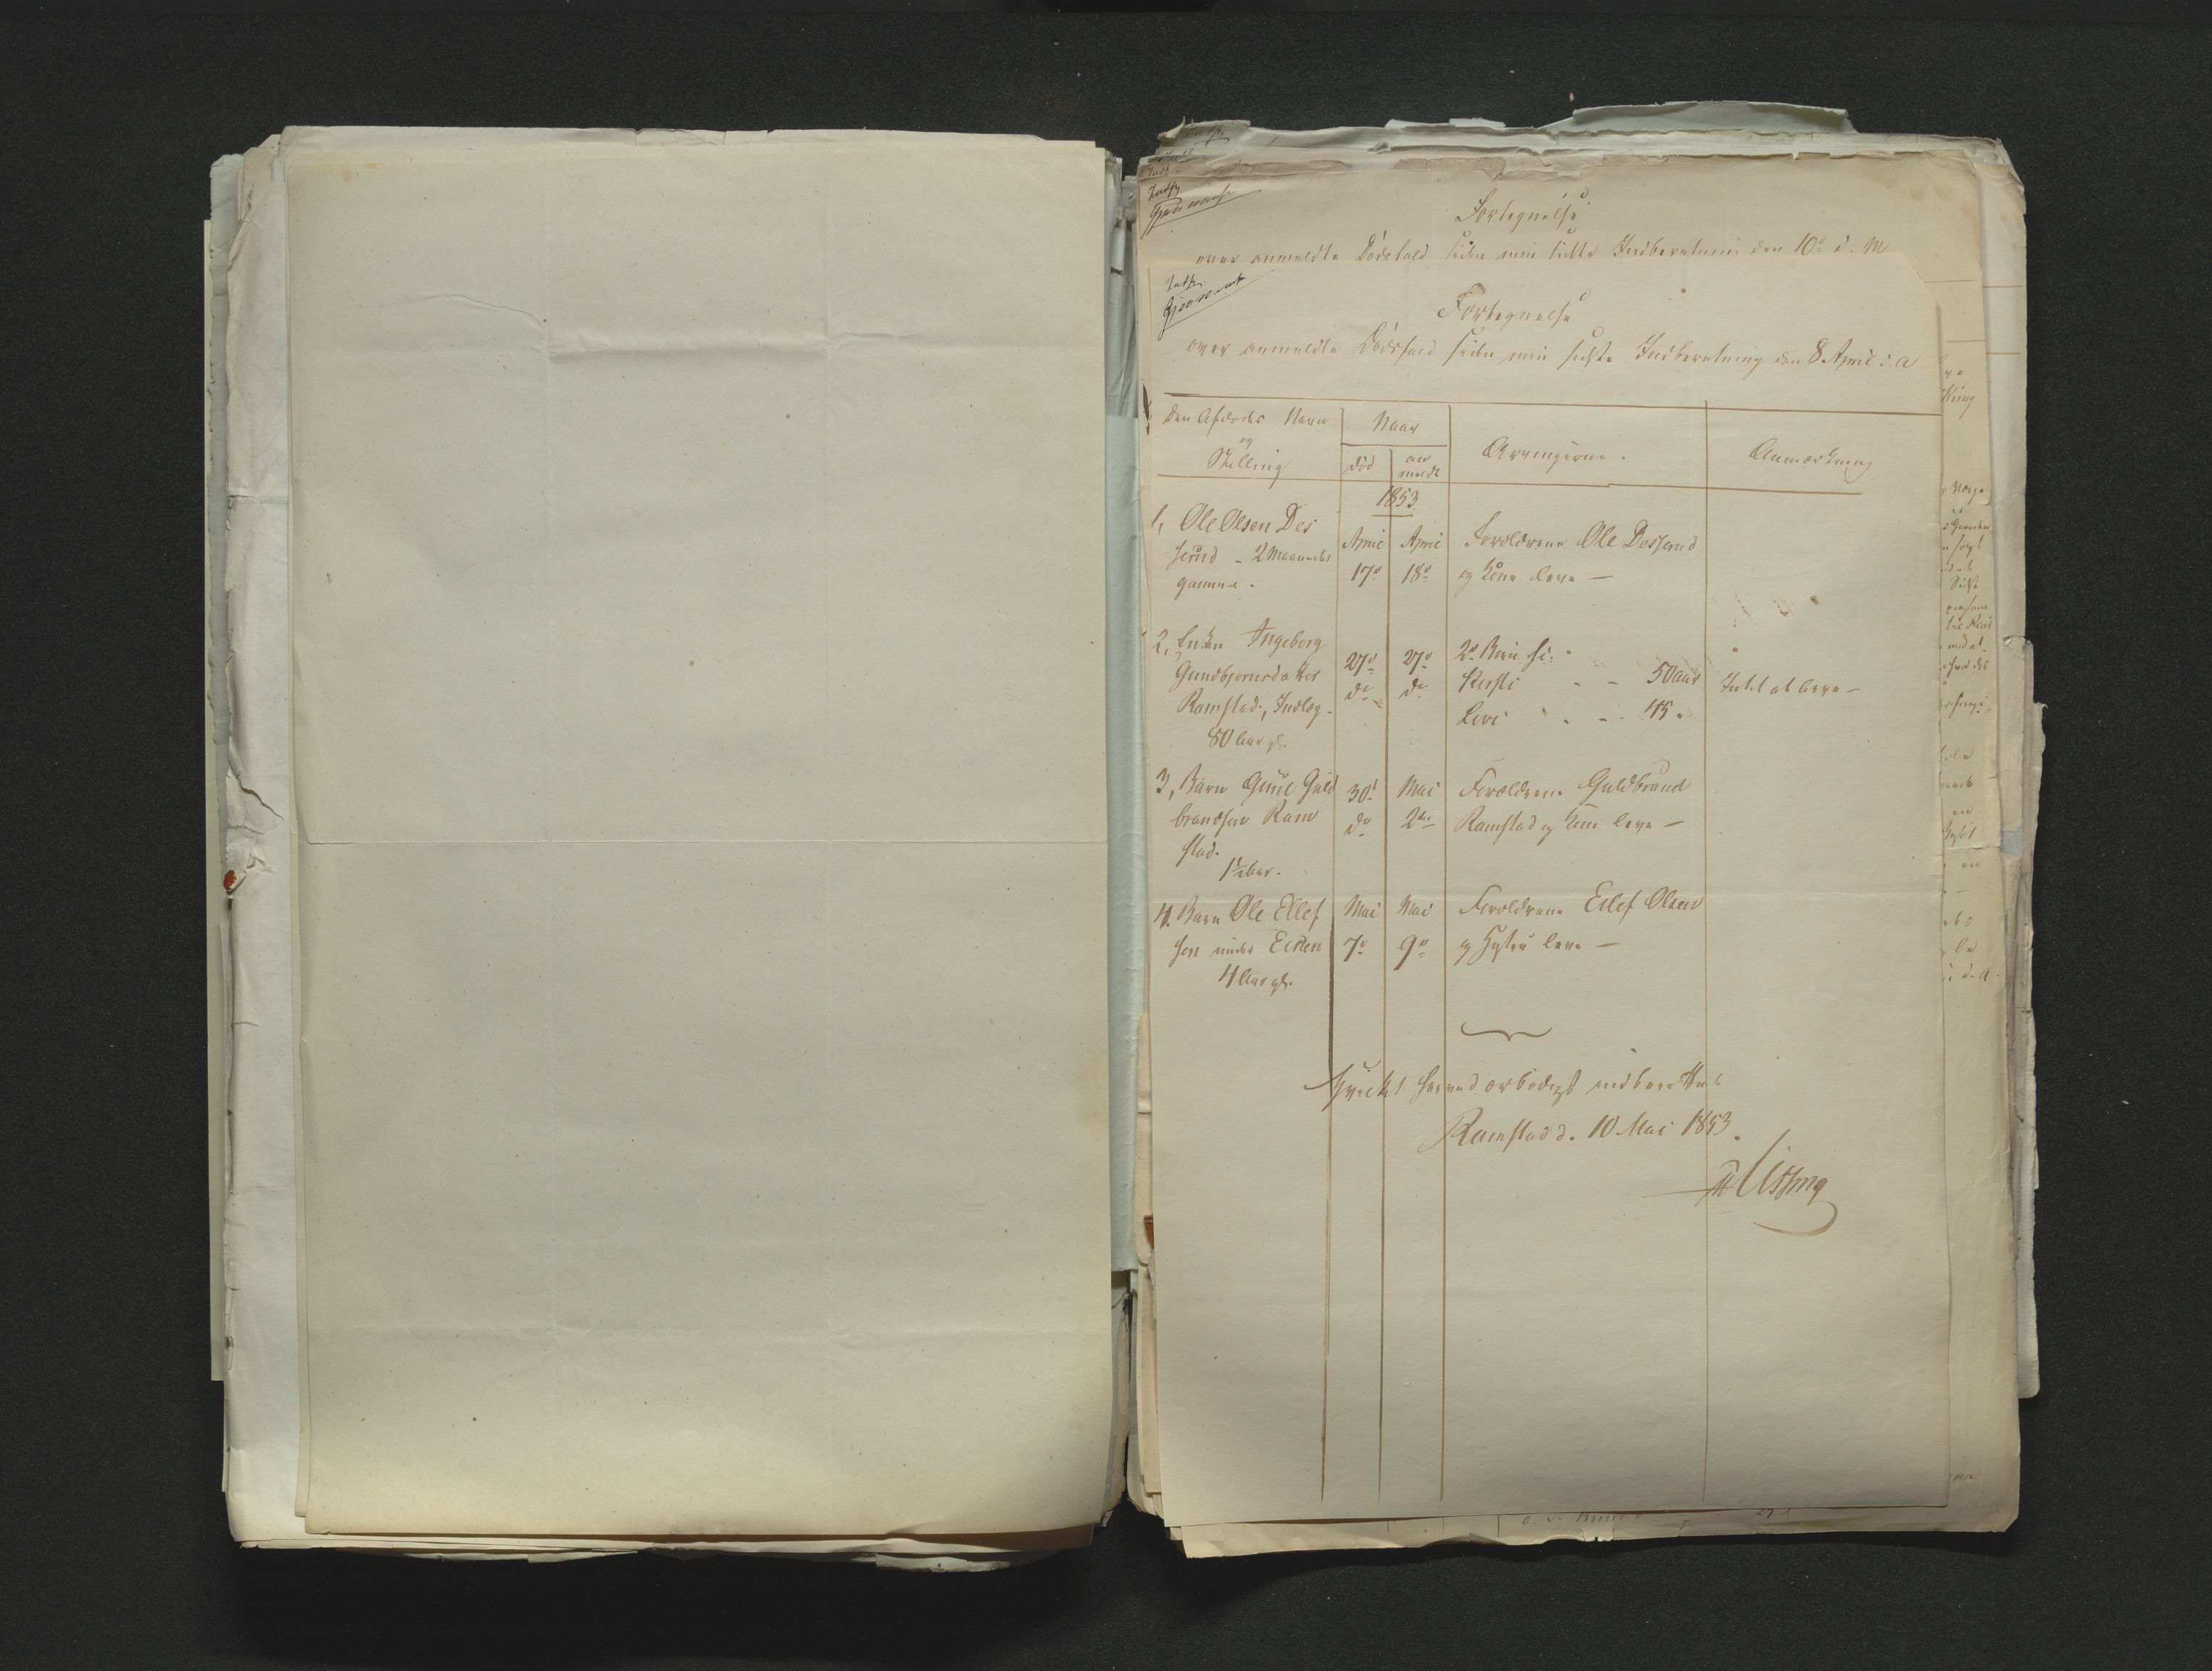 Fortegnelse
over anmeldte Dödsfald siden min sidste Indberetning den 10de d. M
Fortegnelse
over anmeldte Dödsfald siden min sidste Indberetning den 8 April d. A
Den Afdødes Navn
og
Stilling
Naar
död
an
meldt
Arvingerne.
Anmærkning
1853
1, Ole Olsen Des
serud - 2 Maaneder
gammel.
April
17de
April
18de
Forældrene Ole Desserud
og Kone leve —
2, Enken Ingeborg
Gundbjørnsdatter
Ramstad, Indlæg.
80 Aar gl.
27de
do
27de
do
2de Børn
Kersti - - 50 aar
Levi - - 45 "
Intet at arve —
3, Barn Guul Guld
brandsen Ram
stad.
1½ Aar.
30te
do
Mai
2den
Forældrene Guldbrand
Ramstad og Kone leve —
4. Barn Ole Ellef
sen under Ecken
4 Aar gl.
Mai
7de
Mai
9de
Forældrene Ellef Olsen
og Hustru leve —
Hvilket herved ærbödigst indberettes
Ramstad d. 10 Mai 1853.